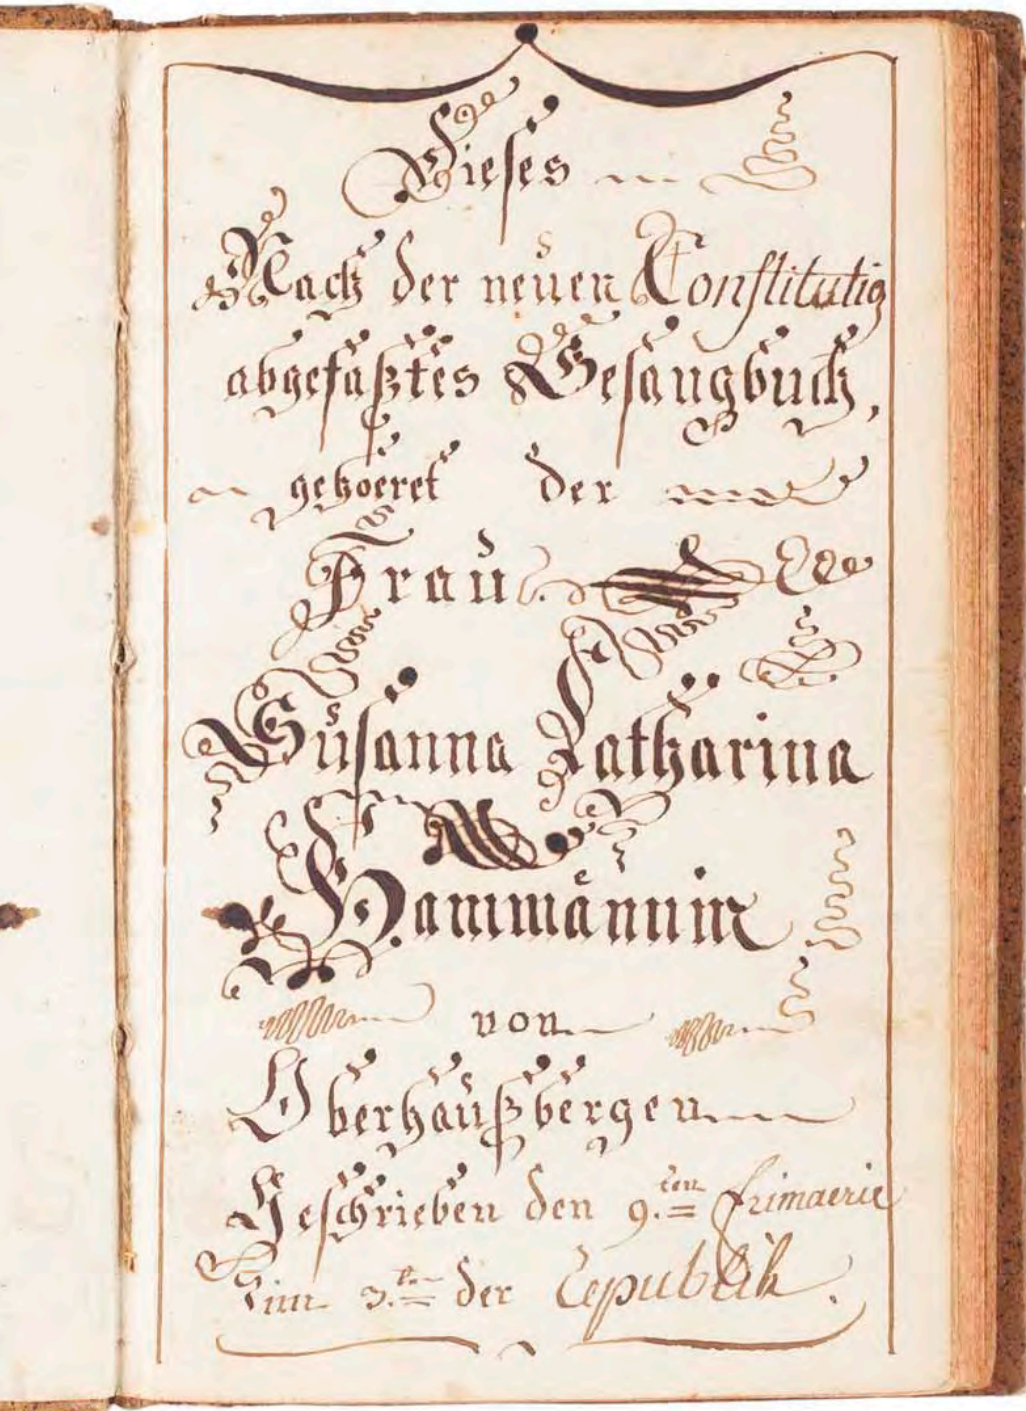 Dieses
Nach der neuen Constitutio
abgefaßtes Gesangbuch,
gehoeret der
Frau
Susanna Catharina
Hammännin
von
Oberhaußbergen
Geschrieben den 9.ten frimaerie
im 3.ten der Republik.